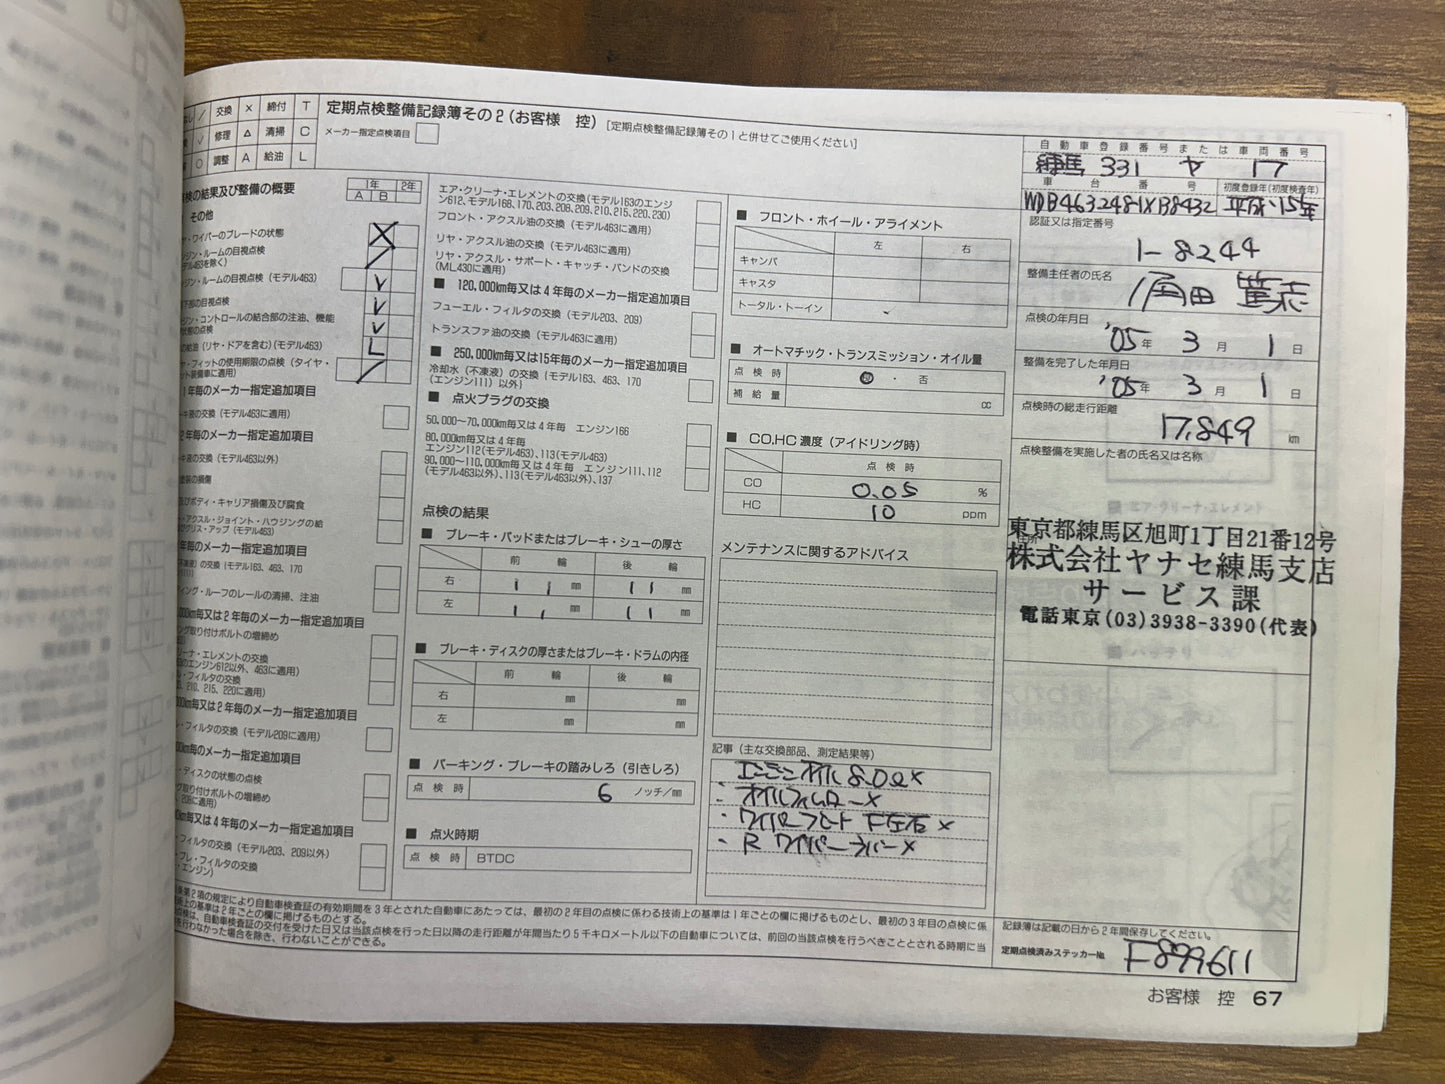 ／ 交換 × 締付 T
√ 修理 △ 清掃 C
○ 調整 A 給油 L
定期点検整備記録簿その2(お客様 控)[定期点検整備記録簿その1と併せてご使用ください]
メーカー指定点検項目
点検の結果及び整備の概要
1年 2年
A B
その他
ワイパーのブレードの状態
ルームの目視点検
を除く)
ルームの目視点検(モデル463)
下部の目視点検
コントロールの結合部の注油、機能
状態の点検
の給油(リヤ・ドアを含む)(モデル463)
フィットの使用期限の点検(タイヤ・
装備車に適用)
1年毎のメーカー指定追加項目
液の交換(モデル463に適用)
2年毎のメーカー指定追加項目
液の交換(モデル463以外)
塗装の損傷
及びボディ・キャリア損傷及び腐食
アクスル・ジョイント・ハウジングの給
びグリス・アップ(モデル463)
年毎のメーカー指定追加項目
(不凍液)の交換(モデル163、463、170
ィング・ルーフのレールの清掃、注油
000km毎又は2年毎のメーカー指定追加項目
取り付けボルトの増締め
リーナ・エレメントの交換
のエンジン612以外、463に適用)
フィルタの交換
210、215、220に適用)
000km毎又は2年毎のメーカー指定追加項目
フィルタの交換(モデル209に適用)
km毎のメーカー指定追加項目
ディスクの状態の点検
取り付けボルトの増締め
208に適用)
km毎又は4年毎のメーカー指定追加項目
フィルタの交換(モデル203、209以外)
プレ・フィルタの交換
エンジン)
エア・クリーナ・エレメントの交換(モデル163のエンジ
ン612、モデル168、170、203、208、209、210、215、220、230)
フロント・アクスル油の交換(モデル463に適用)
リヤ・アクスル油の交換(モデル463に適用)
リヤ・アクスル・サポート・キャッチ・バンドの交換
(ML430に適用)
■ 120,000km毎又は4年毎のメーカー指定追加項目
フューエル・フィルタの交換(モデル203、209)
トランスファ油の交換(モデル463に適用)
■ 250,000km毎又は15年毎のメーカー指定追加項目
冷却水(不凍液)の交換(モデル163、463、170
(エンジン111)以外)
■ 点火プラグの交換
50,000〜70,000km毎又は4年毎 エンジン166
60,000km毎又は4年毎
エンジン112(モデル463)、113(モデル463)
90,000〜110,000km毎又は4年毎 エンジン111、112
(モデル463以外)、113(モデル463以外)、137
点検の結果
■ ブレーキ・パッドまたはブレーキ・シューの厚さ
前 輪 後 輪
右 11 mm 11 mm
左 11 mm 11 mm
■ ブレーキ・ディスクの厚さまたはブレーキ・ドラムの内径
前 輪 後 輪
右 mm mm
左 mm mm
■ パーキング・ブレーキの踏みしろ(引きしろ)
点検時 6 ノッチ/mm
■ 点火時期
点検時 BTDC
■ フロント・ホイール・アライメント
左 右
キャンバ
キャスタ
トータル・トーイン
■ オートマチック・トランスミッション・オイル量
点検時 ・ 否
補給量 cc
■ CO、HC濃度(アイドリング時)
点検時
CO 0.05 %
HC 10 ppm
メンテナンスに関するアドバイス
記事(主な交換部品、測定結果等)
エンジンオイル 8.0ℓ×
・オイルフィルター×
・ワイパーフロント 左右×
・R ワイパーラバー×
自動車登録番号または車両番号
練馬 331 ヤ 17
車台番号
初度登録年(初度検査年)
WDB463248-1XB8432
平成・15年
認証又は指定番号
1-8244
整備主任者の氏名
角田 篤志
点検の年月日
'05年 3月 1日
整備を完了した年月日
'05年 3月 1日
点検時の総走行距離
17,849 km
点検整備を実施した者の氏名又は名称
住所
東京都練馬区旭町1丁目21番12号
株式会社ヤナセ練馬支店
サービス課
電話東京(03)3938-3390(代表)
条第2項の規定により自動車検査証の有効期間を3年とされた自動車にあたっては、最初の2年目の点検に係わる技術上の基準は1年ごとの欄に掲げるものとし、最初の3年目の点検に係
術上の基準は2年ごとの欄に掲げるものとする。
点検は、自動車検査証の交付を受けた日又は当該点検を行った日以降の走行距離が年間当たり5千キロメートル以下の自動車については、前回の当該点検を行うべきこととされる時期に当
を行わなかった場合を除き、行わないことができる。
記録簿は記載の日から2年間保存してください。
定期点検済みステッカー№ F899611
お客様 控 67